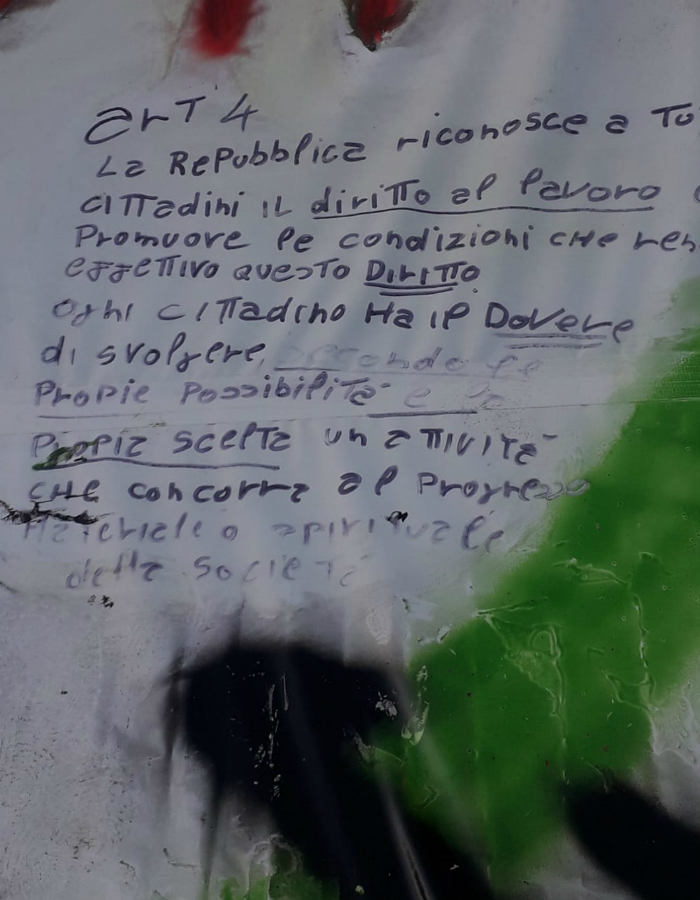 art 4
La Repubblica riconosce a Tu
cittadini il diritto al lavoro
Promuove le condizioni che ren
effettivo questo Diritto
ogni cittadino Ha il Dovere
di svolgere, secondo le
Propie Possibilità e la
Propia scelta un attività
che concorra al Progresso
Materiale o spirituale
della Società